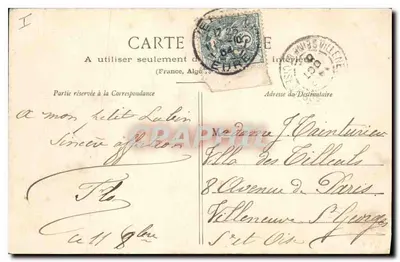 CARTE
A utiliser seulement d
(France, Alg
Partie réservée à la Correspondance
Adresse du Destinataire
a mon petit Lubin
Sincère affection
ce 11 8bre
Madame J. Tainturier
Villa des Tilleuls
8 Avenue de Paris
Villeneuve St Georges
St et Oise
EURE